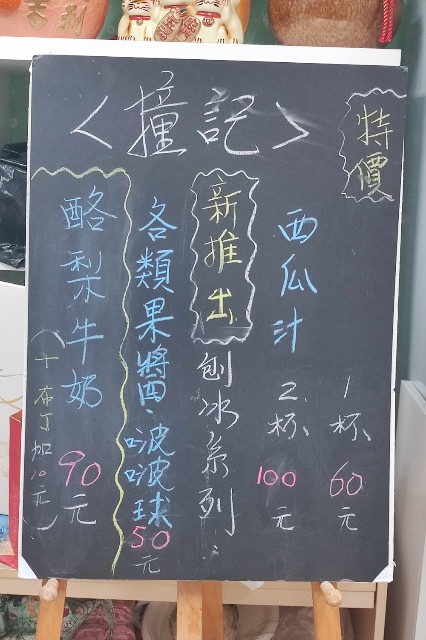 ＜撞記＞
特價
西瓜汁
1杯60元
2杯100元
新推出
刨冰系列
各類果醬、啵啵球
50元
酪梨牛奶
90元
(十布丁加10元)